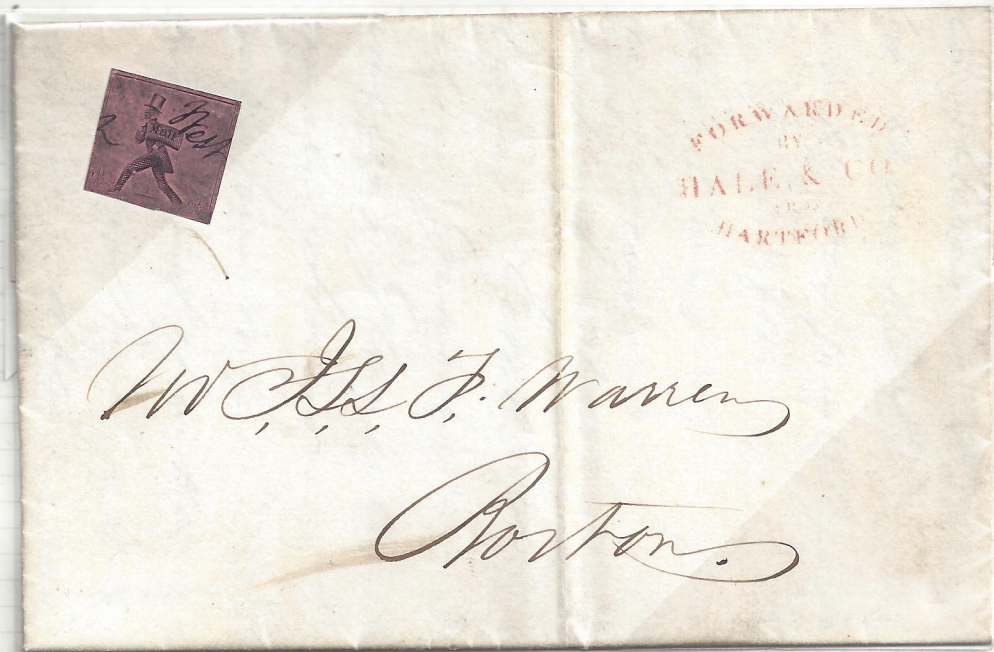 Mail
FORWARDED
BY
HALE & CO.
FROM
HARTFORD
F. Warren
Boston.